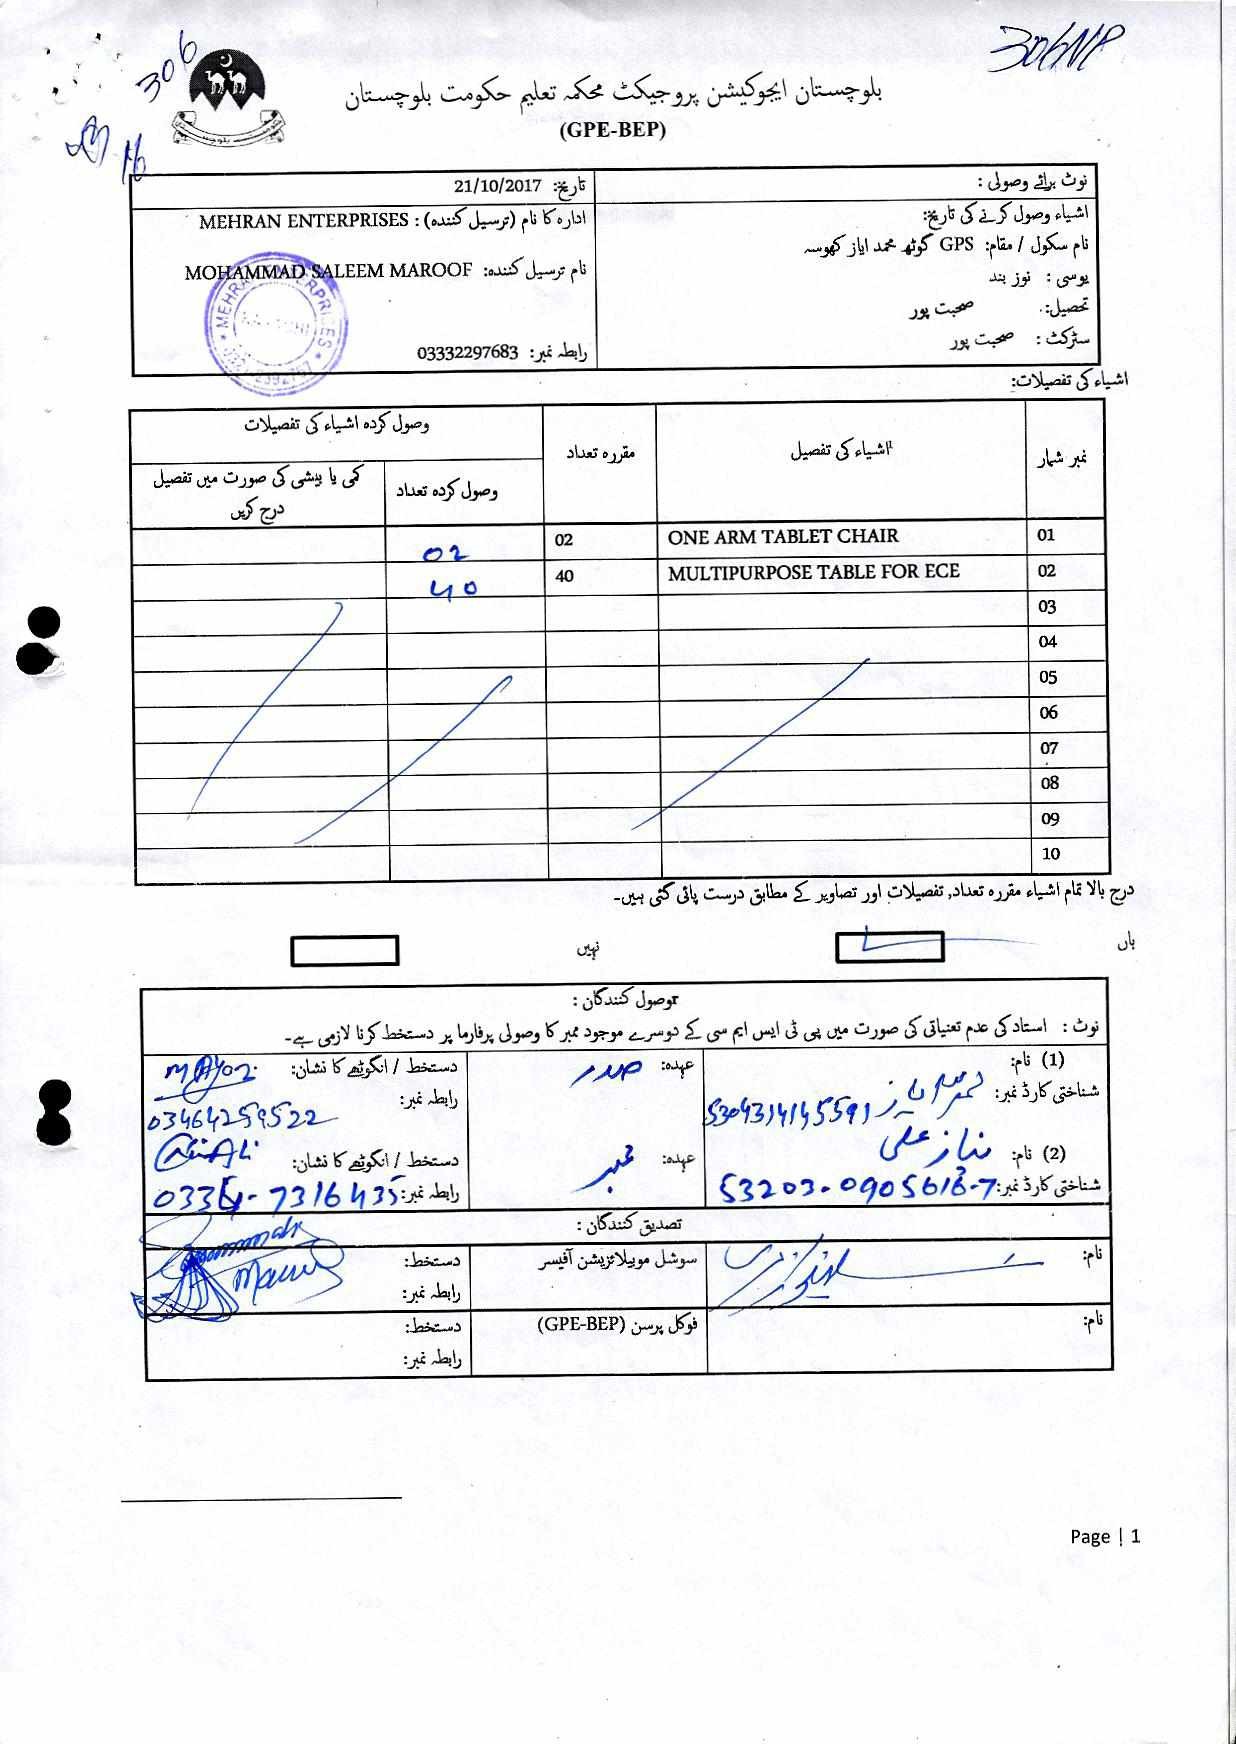 306
306NP
بلوچستان ایجوکیشن پروجیکٹ محکمہ تعلیم حکومت بلوچستان
(GPE-BEP)
نوٹ برائے وصولی :
تاریخ: 21/10/2017
اشیاء وصول کرنے کی تاریخ:
نام سکول / مقام: GPS گوٹھ محمد ایاز کھوسہ
یوسی : نوز بند
تحصیل: صحبت پور
سٹرکٹ : صحبت پور
ادارہ کا نام (ترسیل کنندہ) : MEHRAN ENTERPRISES
نام ترسیل کنندہ: MOHAMMAD SALEEM MAROOF
رابطہ نمبر: 03332297683
MEHRAN ENTERPRISES
اشیاء کی تفصیلات:
نمبر شمار اشیاء کی تفصیل مقررہ تعداد وصول کردہ اشیاء کی تفصیلات
وصول کردہ تعداد کمی یا بیشی کی صورت میں تفصیل درج کریں
01 ONE ARM TABLET CHAIR 02 02
02 MULTIPURPOSE TABLE FOR ECE 40 40
03
04
05
06
07
08
09
10
درج بالا تمام اشیاء مقررہ تعداد, تفصیلات اور تصاویر کے مطابق درست پائی گئی ہیں۔
ہاں نہیں
وصول کنندگان :
نوٹ : استاد کی عدم تعنیاتی کی صورت میں پی ٹی ایس ایم سی کے دوسرے موجود ممبر کا وصولی پرفارما پر دستخط کرنا لازمی ہے۔
(1) نام:
شناختی کارڈ نمبر: 5304314145591
عہدہ: صدر
دستخط / انگوٹھے کا نشان:
رابطہ نمبر: 03464259522
(2) نام: نیاز علی
شناختی کارڈ نمبر: 53203-0905613-7
عہدہ: ممبر
دستخط / انگوٹھے کا نشان:
رابطہ نمبر: 0334-7316435
تصدیق کنندگان :
نام:
سوشل موبیلائزیشن آفیسر
دستخط:
رابطہ نمبر:
نام:
فوکل پرسن (GPE-BEP)
دستخط:
رابطہ نمبر:
Page | 1